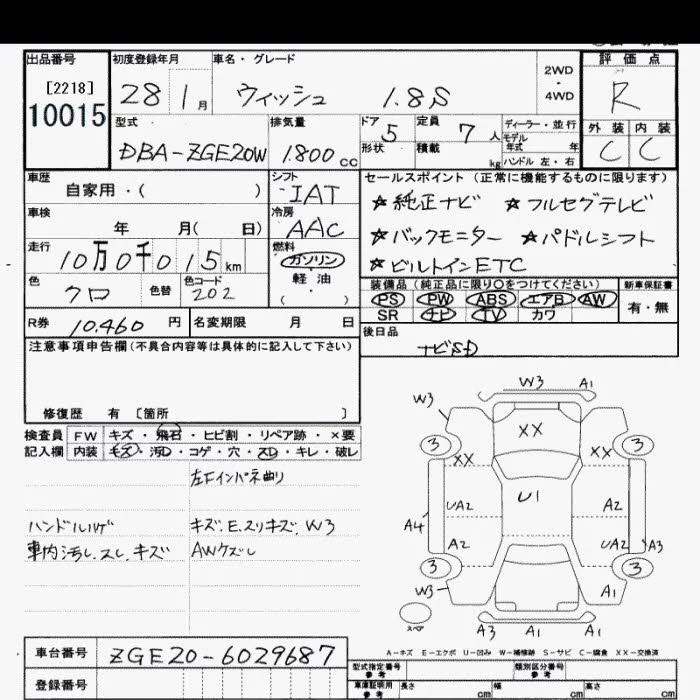 出品番号 初度登録年月 車名・グレード 評価点
[2218] 2WD・4WD
10015 28 1月 ウィッシュ 1.8S R
型式 排気量 ドア 5 定員 7人 ディーラー・並行 外装 内装
DBA-ZGE20W 1.800cc 形状 積載 kg モデル年式 年 C C
ハンドル 左・右
車歴 シフト セールスポイント (正常に機能するものに限ります)
自家用・( ) IAT ☆純正ナビ ☆フルセグテレビ
車検 冷房
年 月( 日) AAC ☆バックモニター ☆パドルシフト
走行 燃料
10万0千015km ガソリン ☆ビルトインETC
色 色替 色コード 軽油 装備品 (純正品に限り○をつけてください) 新車保証書
クロ 202 ( ・ ) PS PW ABS エアB AW 有・無
R券 10.460円 名変期限 月 日 SR ナビ TV カワ
注意事項申告欄(不具合内容等は具体的に記入して下さい) 後日品
ナビSD
修復歴 有 〔箇所 〕
検査員 FW キズ・飛石・ヒビ割・リペア跡・×要
記入欄 内装 キズ・汚レ・コゲ・穴・スレ・キレ・破レ
左Fインパネ曲り
キズ.E.スリキズ.W3
車内汚レ.スレ.キズ AWケズレ
W3 A1
W3
XX
3 3
XX XX
U1
UA2 A2
A4
A2 UA2 A3
3 3
W3 A1
スペア
A3 A1 A1
A-キズ E-エクボ U-凹み W-補修跡 S-サビ C-腐食 XX-交換済
車台番号 ZGE20-6029687
型式指定番号 参考 類別区分番号 参考
登録番号 車庫証明用 参考 長さ cm 幅 cm 高さ cm